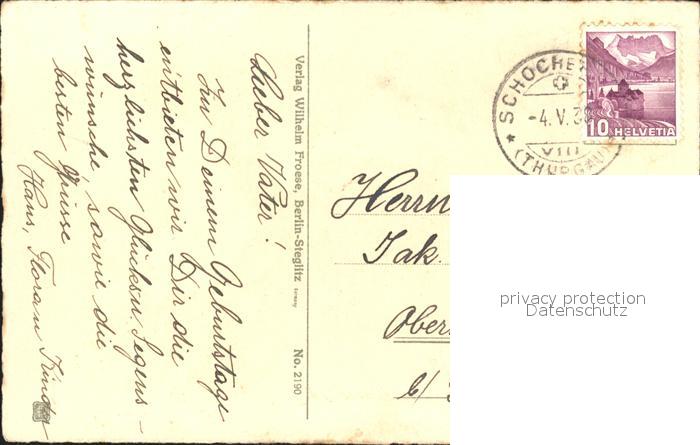 Lieber Vater!
Zu Deinem Geburtstage
entbieten wir Dir die
herzlichsten Glücks u Segens-
wünsche, sowie die
besten Grüsse
Hans, Kinder
Verlag Wilhelm Froese, Berlin-Steglitz
No. 2190
SCHOCHE
-4.V.38
VIII
(THURGAU)
10 HELVETIA
Herrn
Jak.
Ober
b/
privacy protection
Datenschutz